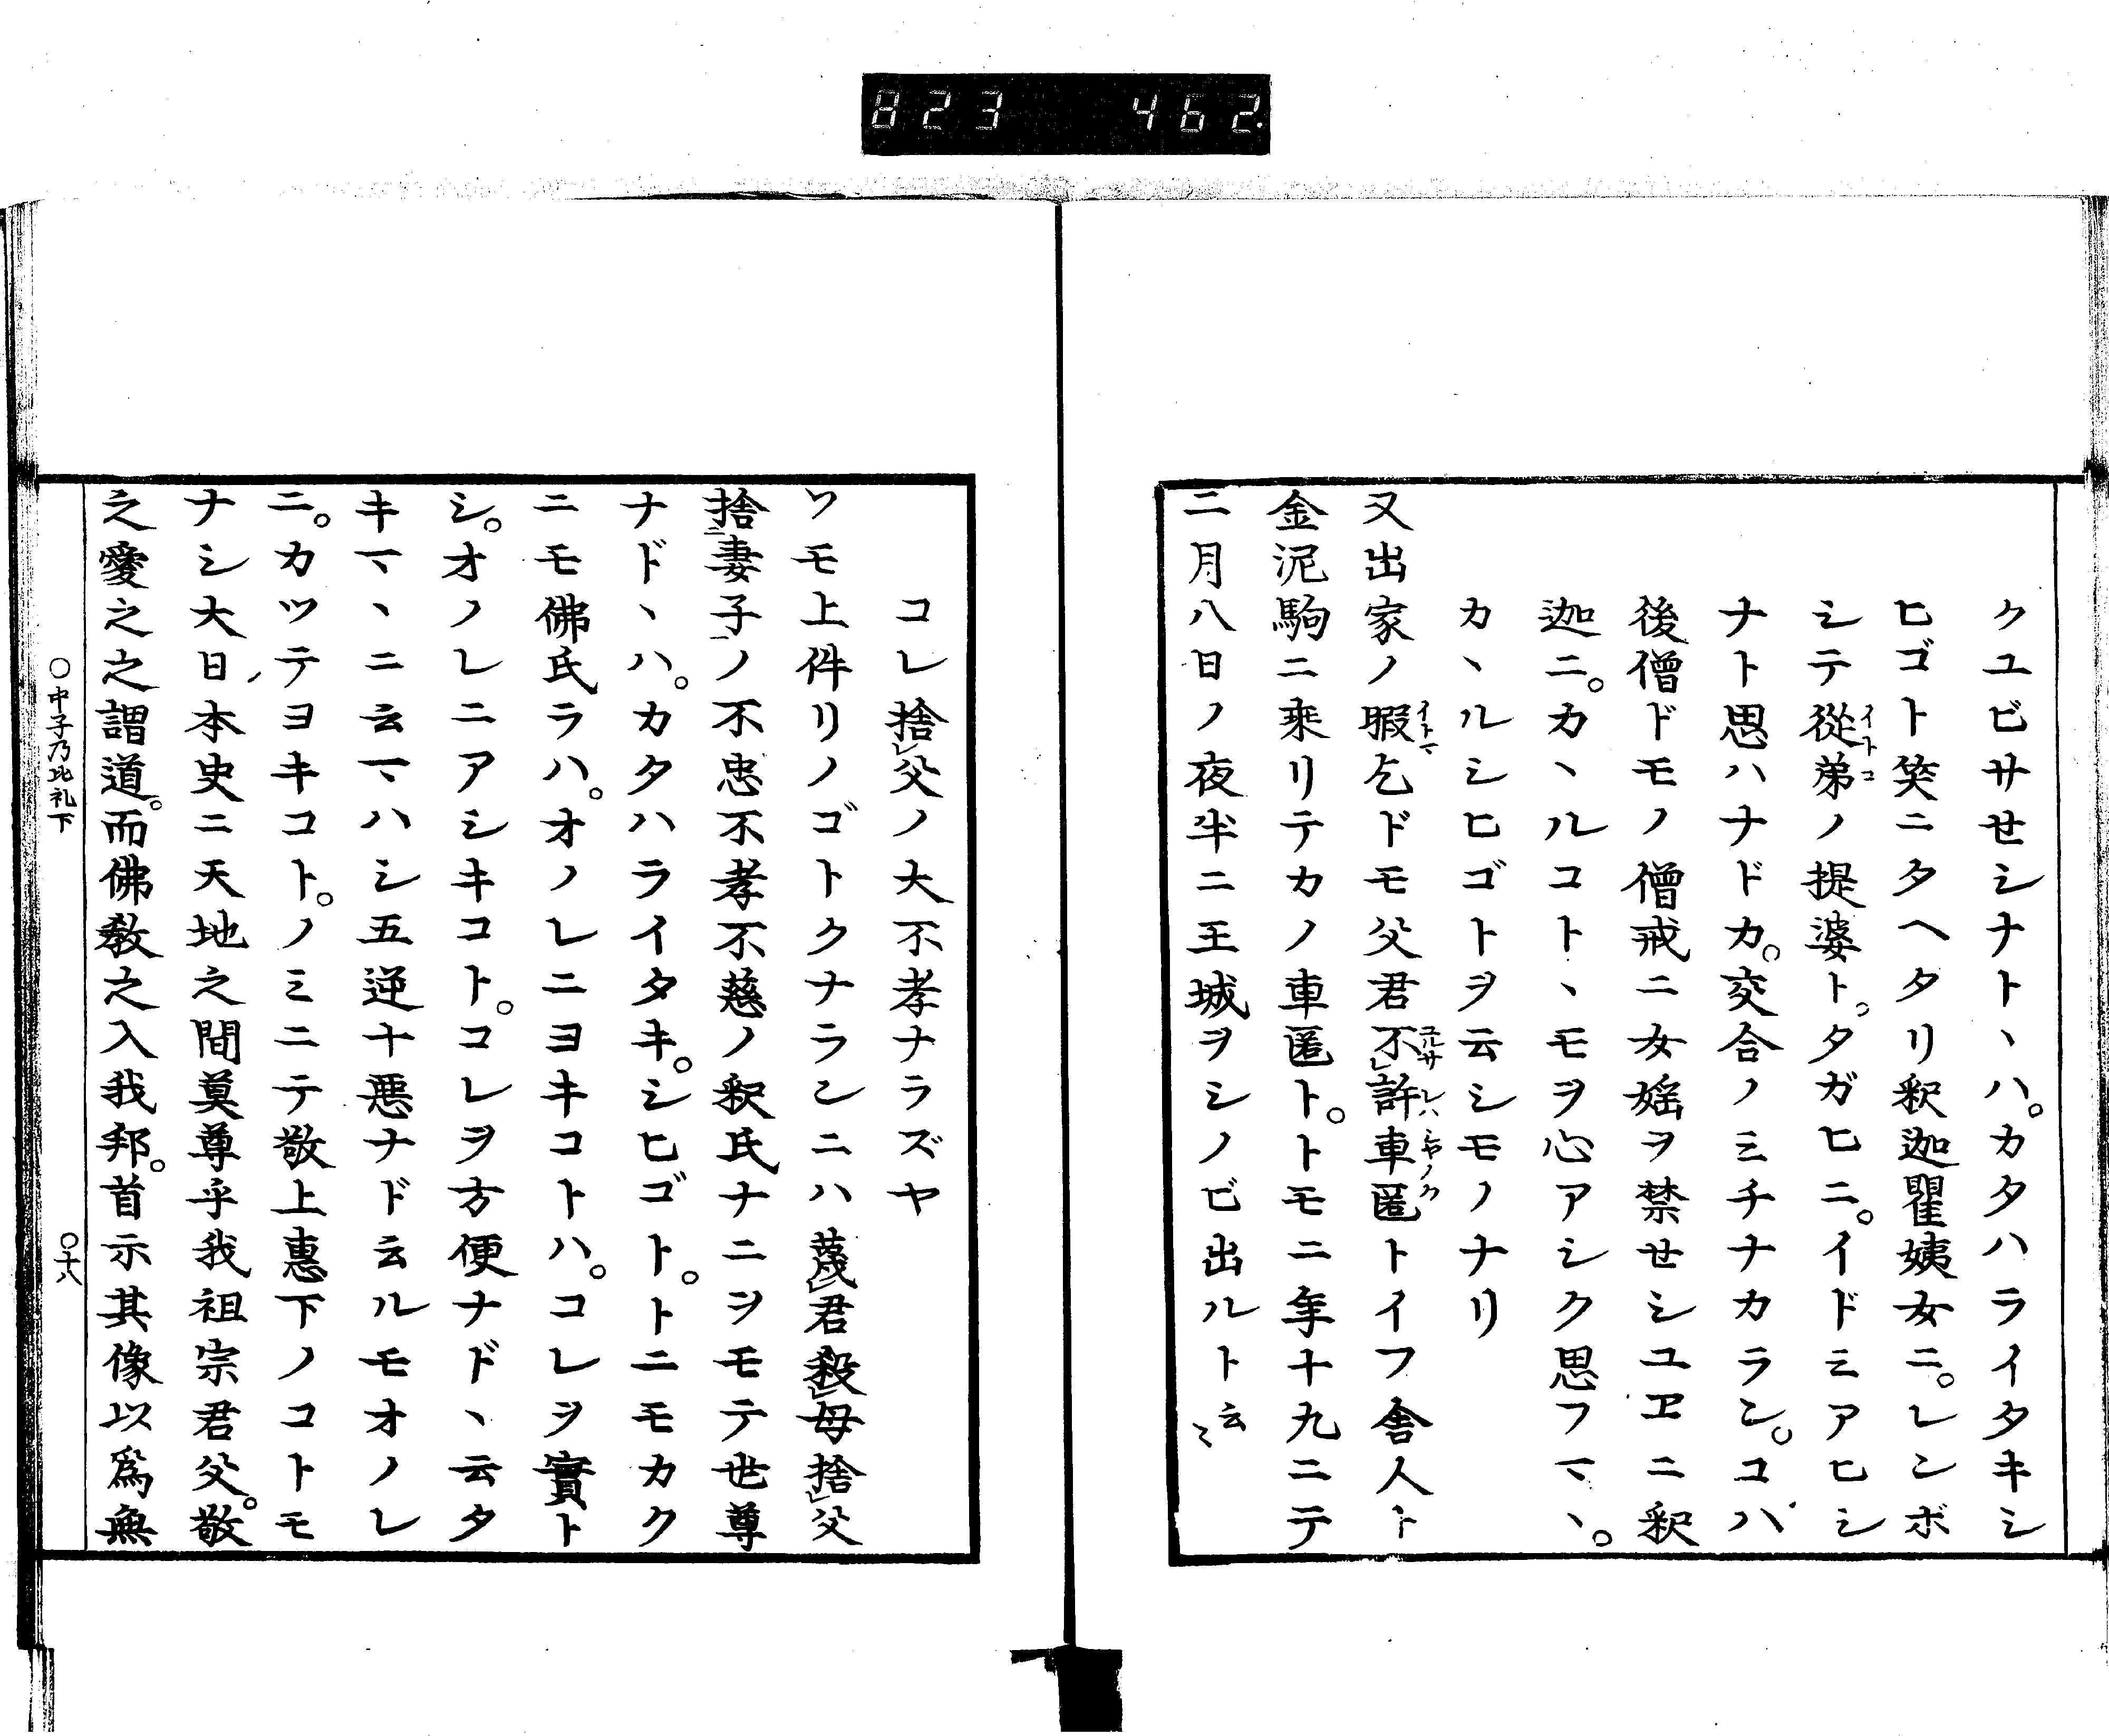 823 462.
クユビサセシナト、ハ。カタハライタキシ
ヒゴト笑ニタヘタリ釈迦瞿姨女ニ。レンボ
シテ従弟ノ提婆ト。タガヒニ。イドミアヒシ
イトコ
ナト思ハナドカ。交合ノミチナカラン。コハ
後僧ドモノ僧戒ニ女婬ヲ禁セシユヱニ釈
迦ニ。カヽルコト、モヲ心アシク思フマヽ。
カヽルシヒゴトヲ云シモノナリ
又出家ノ暇乞ドモ父君不レ許車匿トイフ舎人ト
イトマ
ユルサレハシヤノク
金泥駒ニ乗リテカノ車匿ト。トモニ年十九ニテ
二月八日ノ夜半ニ王城ヲシノビ出ルト云〻
コレ捨レ父ノ大不孝ナラズヤ
ソモ上件リノゴトクナランニハ蔑レ君殺レ母捨レ父
捨二妻子一ノ不忠不孝不慈ノ釈氏ナニヲモテ世尊
ナド、ハ。カタハライタキ。シヒゴト。トニモカク
ニモ佛氏ラハ。オノレニヨキコトハ。コレヲ實ト
シ。オノレニアシキコト。コレヲ方便ナド、云タ
キマヽニ云マヽハシ五逆十悪ナド云ルモオノレ
ニ。カツテヨキコト。ノミニテ敬上惠下ノコトモ
ナシ大日本史ニ天地之間莫尊乎我祖宗君父。敬
之愛之之謂道。而佛教之入我邦。首示其像以爲無
○中子乃比礼下
○十八